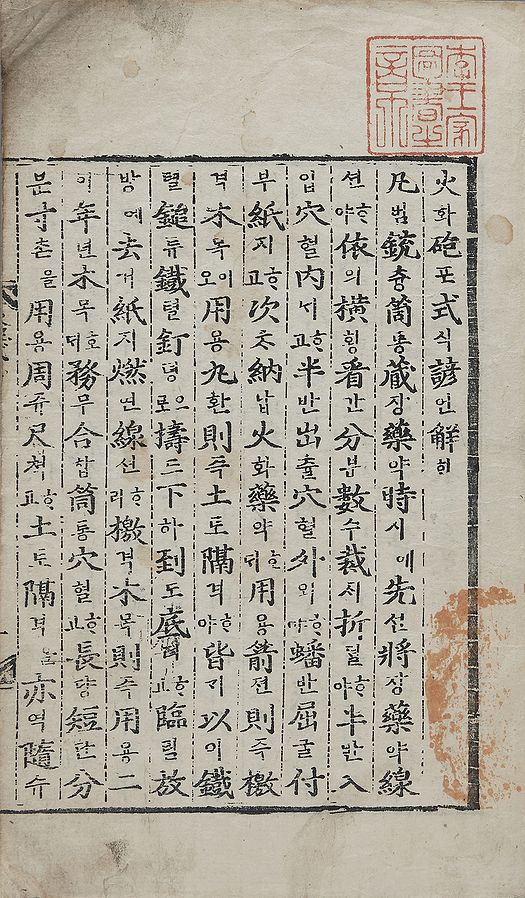 李王家圖書之章
火화砲포式식諺언解ᄒᆡ
凡범銃츙筒통藏장藥약時시예先션將쟝藥약線
션ᄒᆞ야依의橫횡看간分분數수裁ᄌᆡ折졀ᄒᆞ야半반入
입穴혈內ᄂᆡᄒᆞ고半반出츌穴혈外외ᄒᆞ야蟠반屈굴付
부紙지ᄒᆞ고次ᄎᆞ納납火화藥약호ᄃᆡ用용箭젼則즉檄
격木목이오用용丸환則즉土토隔격ᄒᆞ야皆ᄀᆡ以이鐵
텰鎚듀鐵텰釘뎡으로擣도下하到도底뎌ᄒᆞ고臨림放
방에去거紙지燃연線션ᄒᆞ라檄격木목則즉用용二
이年년木목호ᄃᆡ務무合합筒통穴혈ᄒᆞ고長댱短단分
분寸촌을用용周쥬尺쳑ᄒᆞ고土토隔격늘亦역隨슈